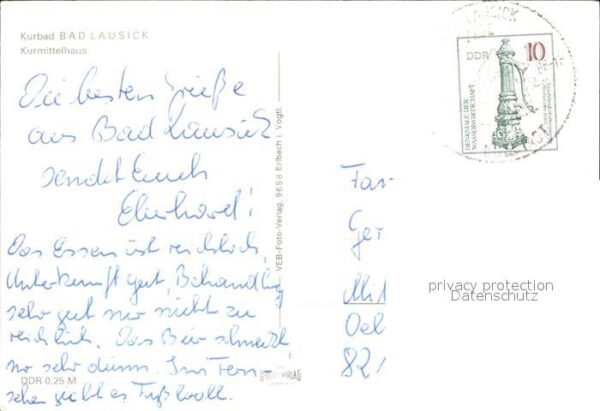 Kurbad BAD LAUSICK
Kurmittelhaus
Die besten Grüße
aus Bad Lausick
sendet Euch
Eberhard!
Das Essen ist reichlich,
Unterkunft gut, Behandlung
sehr gut nur nicht zu
reichlich. Das Bier schmeckt
nur sehr dünn. Im Fern
sehen gibt es Fußball.
DDR 0,25 M
VEB-Foto-Verlag, 9658 Erlbach i. Vogtl.
FOTO VERLAG
LAUSICK
DDR 10
DENKMALE DER
WASSERWIRTSCHAFT
Fam
Ger
Mit
Oel
82
privacy protection
Datenschutz